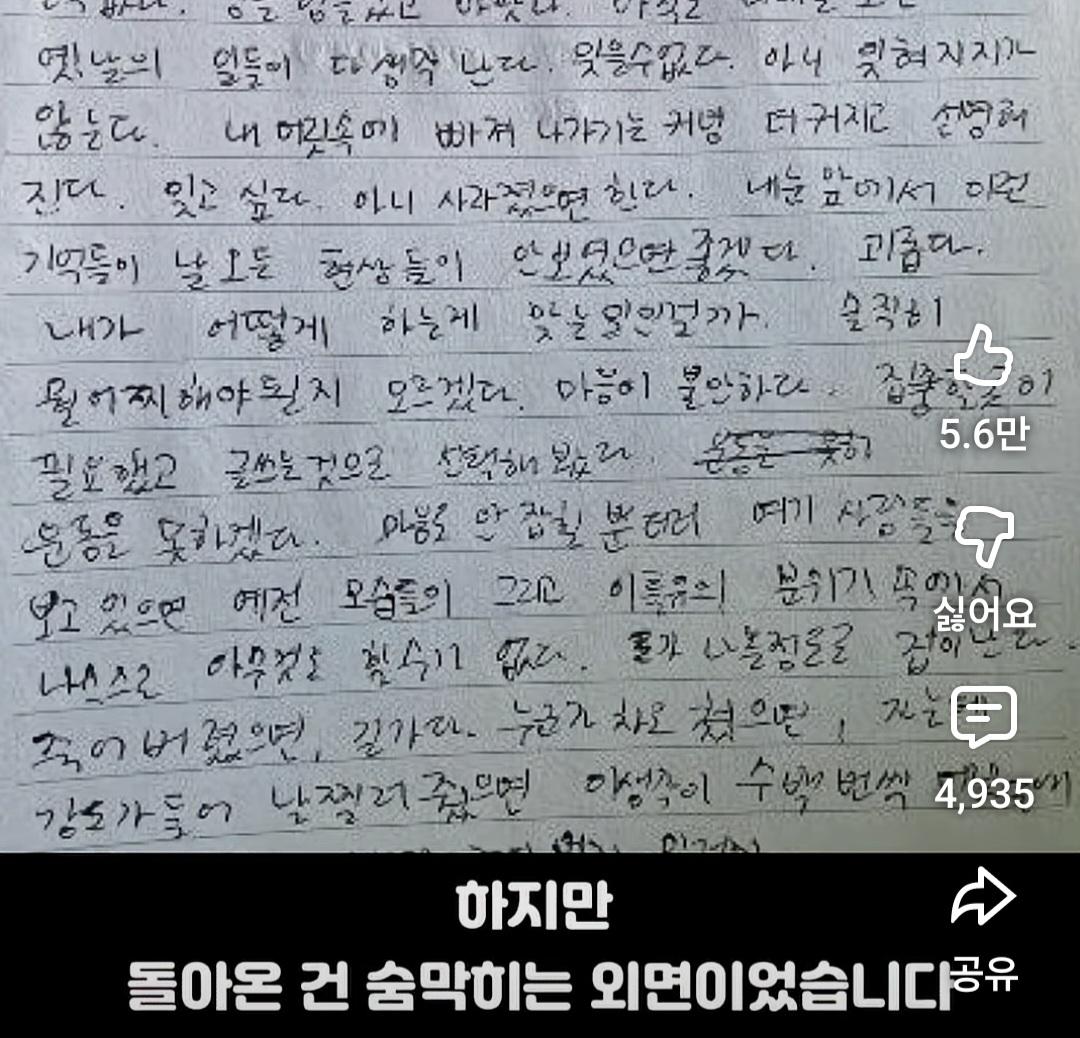 옛날의 일들이 다 생각 난다. 잊을수없다. 아니 잊혀지지가
않는다. 내 머릿속에 빠져 나가기는 커녕 더커지고 선명해
진다. 잊고 싶다. 아니 사라졌으면 한다. 내눈 앞에서 이런
기억들이 날 모든 현상들이 안보였으면 좋겠다. 괴롭다.
내가 어떻게 하는게 맞는 일인걸까. 솔직히
뭘 어찌해야될지 모르겠다. 마음이 불안하다. 집중할곳이
필요했고 글쓰는것으로 선택해 봤다.
운동을 못하겠다. 마음도 안 잡힐 뿐더러 여기 사람들을
보고 있으면 예전 모습들이 그리고 이특유의 분위기 속에서
나 스스로 아무것도 할수가 없다. 눈물정도로 겁이난다.
죽어버렸으면, 길가다. 누군가 차로 쳤으면, 자는데
강도가 들어 날 찔러 줬으면 이생각이 수백 번씩
5.6만
싫어요
4,935
공유
하지만
돌아온 건 숨막히는 외면이었습니다